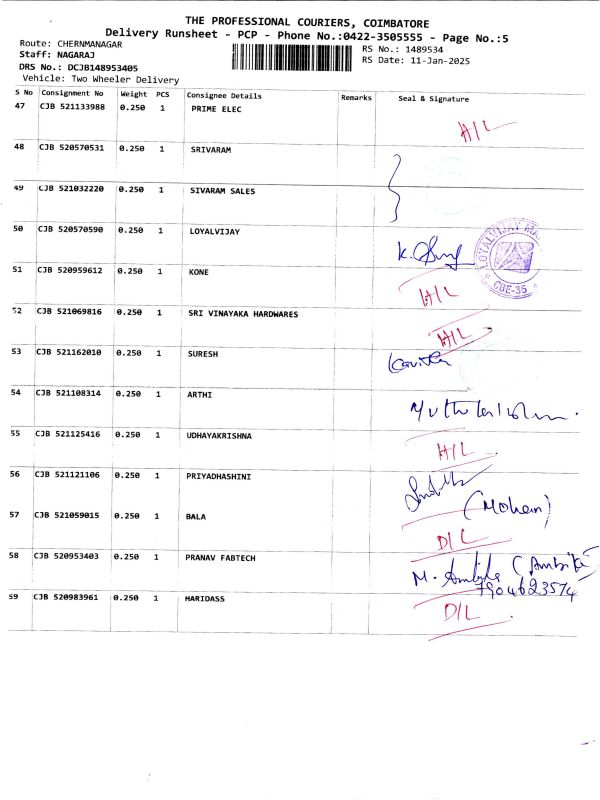 THE PROFESSIONAL COURIERS, COIMBATORE
Delivery Runsheet - PCP - Phone No.:0422-3505555 - Page No.:5
Route: CHERNMANAGAR
RS No.: 1489534
Staff: NAGARAJ
RS Date: 11-Jan-2025
DRS No.: DCJB148953405
Vehicle: Two Wheeler Delivery
S No Consignment No Weight PCS Consignee Details Remarks Seal & Signature
47 CJB 521133988 0.250 1 PRIME ELEC
H/L
48 CJB 520570531 0.250 1 SRIVARAM
49 CJB 521032220 0.250 1 SIVARAM SALES
50 CJB 520570590 0.250 1 LOYALVIJAY
LOYALVIJAY
CBE-35
51 CJB 520959612 0.250 1 KONE
H/L
52 CJB 521069816 0.250 1 SRI VINAYAKA HARDWARES
H/L
53 CJB 521162010 0.250 1 SURESH
Kavitha
54 CJB 521108314 0.250 1 ARTHI
55 CJB 521125416 0.250 1 UDHAYAKRISHNA
H/L
56 CJB 521121106 0.250 1 PRIYADHASHINI
(Mohan)
57 CJB 521059015 0.250 1 BALA
D/L
58 CJB 520953403 0.250 1 PRANAV FABTECH
M. Ambika (Ambika)
7904623574
59 CJB 520983961 0.250 1 HARIDASS
D/L